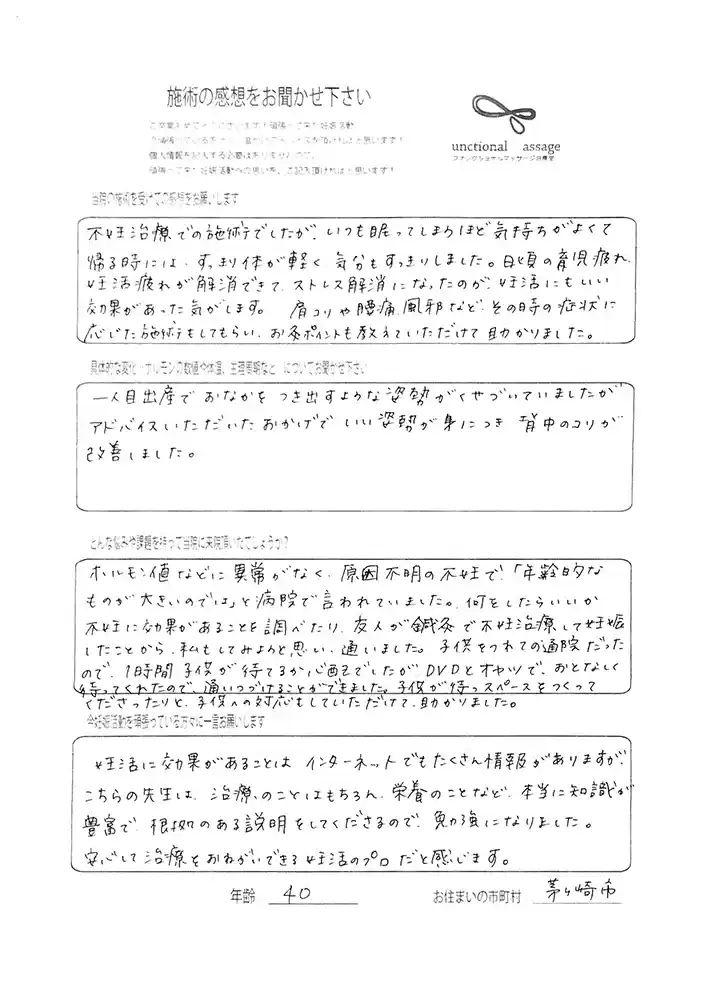 施術の感想をお聞かせ下さい
unctional assage
ファンクショナルマッサージ治療室
個人情報を記入する必要はありませんので、
頑張って来た妊娠活動への思いを、ご記入頂ければと思います!
当院の施術を受けての感想をお願いします
不妊治療での施術でしたが、いつも眠ってしまうほど気持ちがよくて
帰る時には、すっきり体が軽く、気分もすっきりしました。日頃の育児疲れ、
妊活疲れが解消できて、ストレス解消になったのが、妊活にもいい
効果があった気がします。 肩コリや腰痛、風邪など、その時の症状に
応じた施術をしてもらい、お灸ポイントも教えていただけて助かりました。
具体的な変化・ホルモンの数値や体温、生理周期など についてお聞かせ下さい
一人目出産で おなかを つき出すような姿勢がくせづいていましたが
アドバイスいただいたおかげで いい姿勢が身につき 背中のコリが
改善しました。
どんな悩みや課題を持って当院に来院頂いたでしょうか?
ホルモン値などに異常がなく、原因不明の不妊で、「年齢的な
ものが大きいのでは」と病院で言われていました。何をしたらいいか
不妊に効果があることを調べたり、友人が鍼灸で不妊治療して妊娠
したことから、私もしてみようと思い、通いました。子供をつれての通院だった
ので、1時間子供が待てるか心配でしたがDVDとオヤツで、おとなしく
待ってくれたので、通いつづけることができました。子供が待つスペースをつくって
くださったりと、子供への対応もしていただけて、助かりました。
今妊娠活動を頑張っている方々に一言お願いします
妊活に効果があることは インターネットでもたくさん情報がありますが、
こちらの先生は、治療のことはもちろん、栄養のことなど、本当に知識が
豊富で、根拠のある説明をしてくださるので、勉強になりました。
安心して治療をおねがいできる妊活のプロだと感じます。
年齢 40 お住まいの市町村 茅ヶ崎市